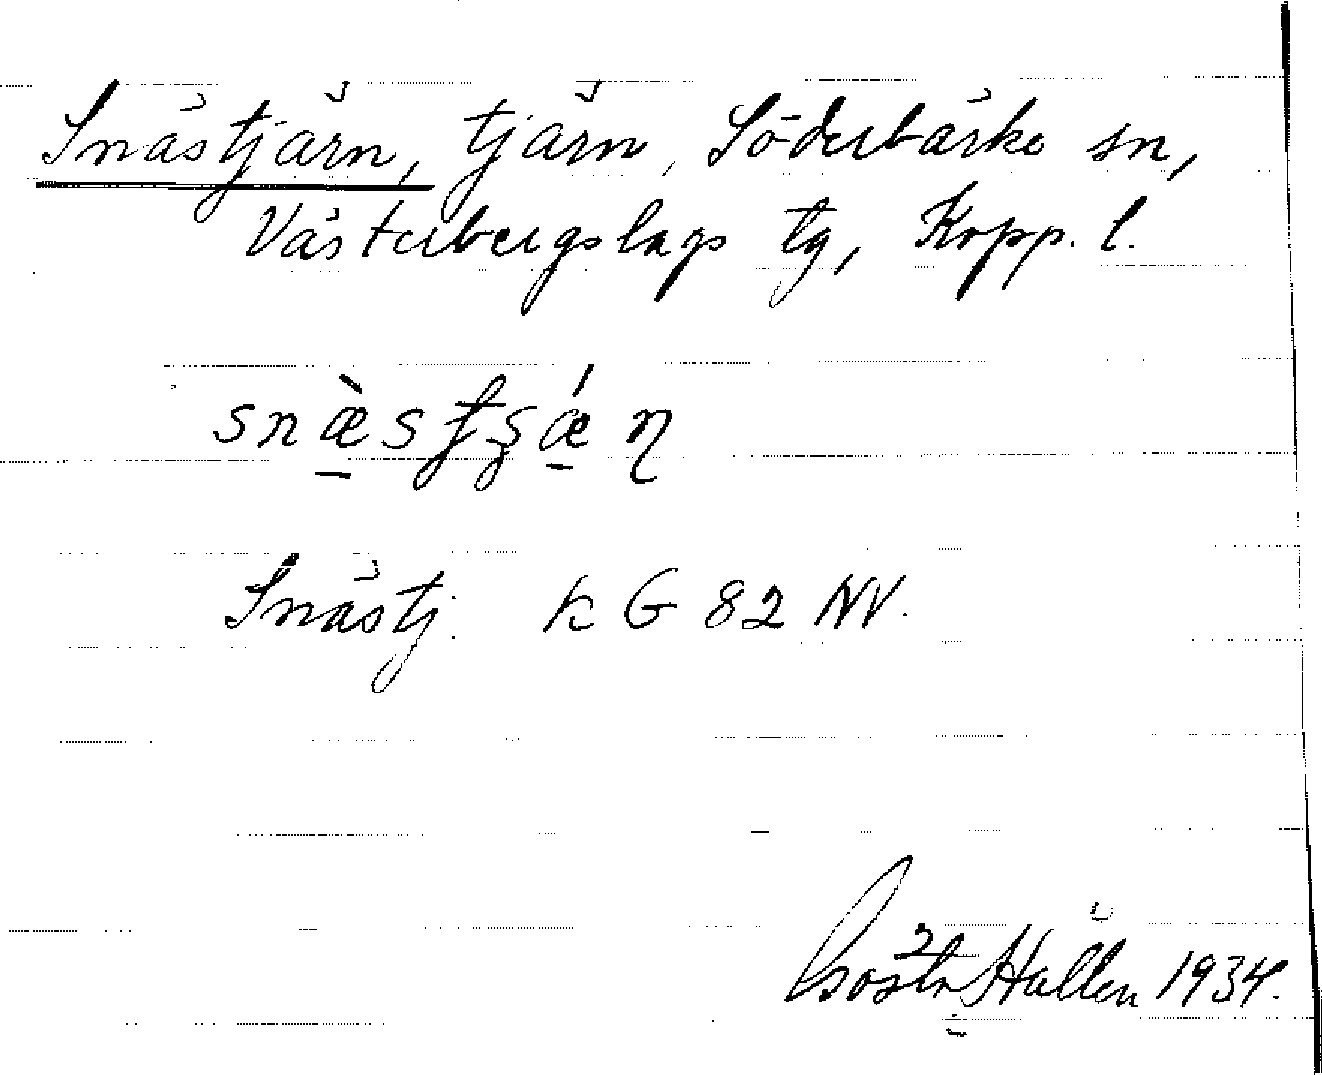 Snästjärn, tjärn, Söderbärke sn,
Västerbergslags tg, Kopp. l.
Snästj. k G 82 NV.
Gösta Hallén 1934.